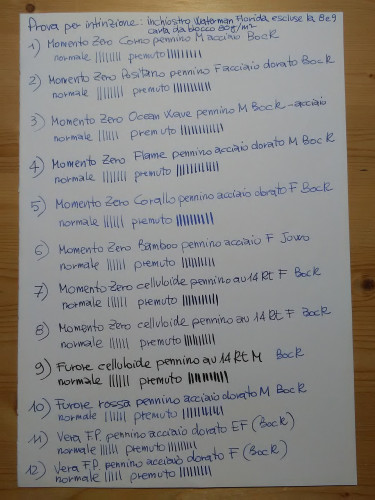 Prova per intinzione: inchiostro Waterman Florida, escluse la 8 e 9
carta da blocco 80g/m2
1) Momento Zero Corno pennino M acciaio Bock
normale |||||||| premuto ||||||||||
2) Momento Zero Positano pennino F acciaio dorato Bock
normale |||||||| premuto ||||||||||
3) Momento Zero Ocean Wave pennino M Bock - acciaio
normale ||||||| premuto |||||||||||
4) Momento Zero Flame pennino acciaio dorato M Bock
normale ||||||| premuto ||||||||||
5) Momento Zero Corallo pennino acciaio dorato F Bock
normale |||||| premuto |||||||||
6) Momento Zero Bamboo pennino acciaio F Jowo
normale |||||| premuto |||||||||
7) Momento Zero celluloide pennino au 14 Kt F Bock
normale |||||| premuto |||||||||
8) Momento Zero celluloide pennino au 14 Kt F Bock
normale |||||| premuto |||||||||
9) Furore celluloide pennino au 14 Kt M Bock
normale |||||| premuto ||||||||||
10) Furore rossa pennino acciaio dorato M Bock
normale |||||| premuto ||||||||||
11) Vera F.P. pennino acciaio dorato EF (Bock)
normale |||||| premuto ||||||||
12) Vera F.P. pennino acciaio dorato F (Bock)
normale |||||| premuto |||||||||